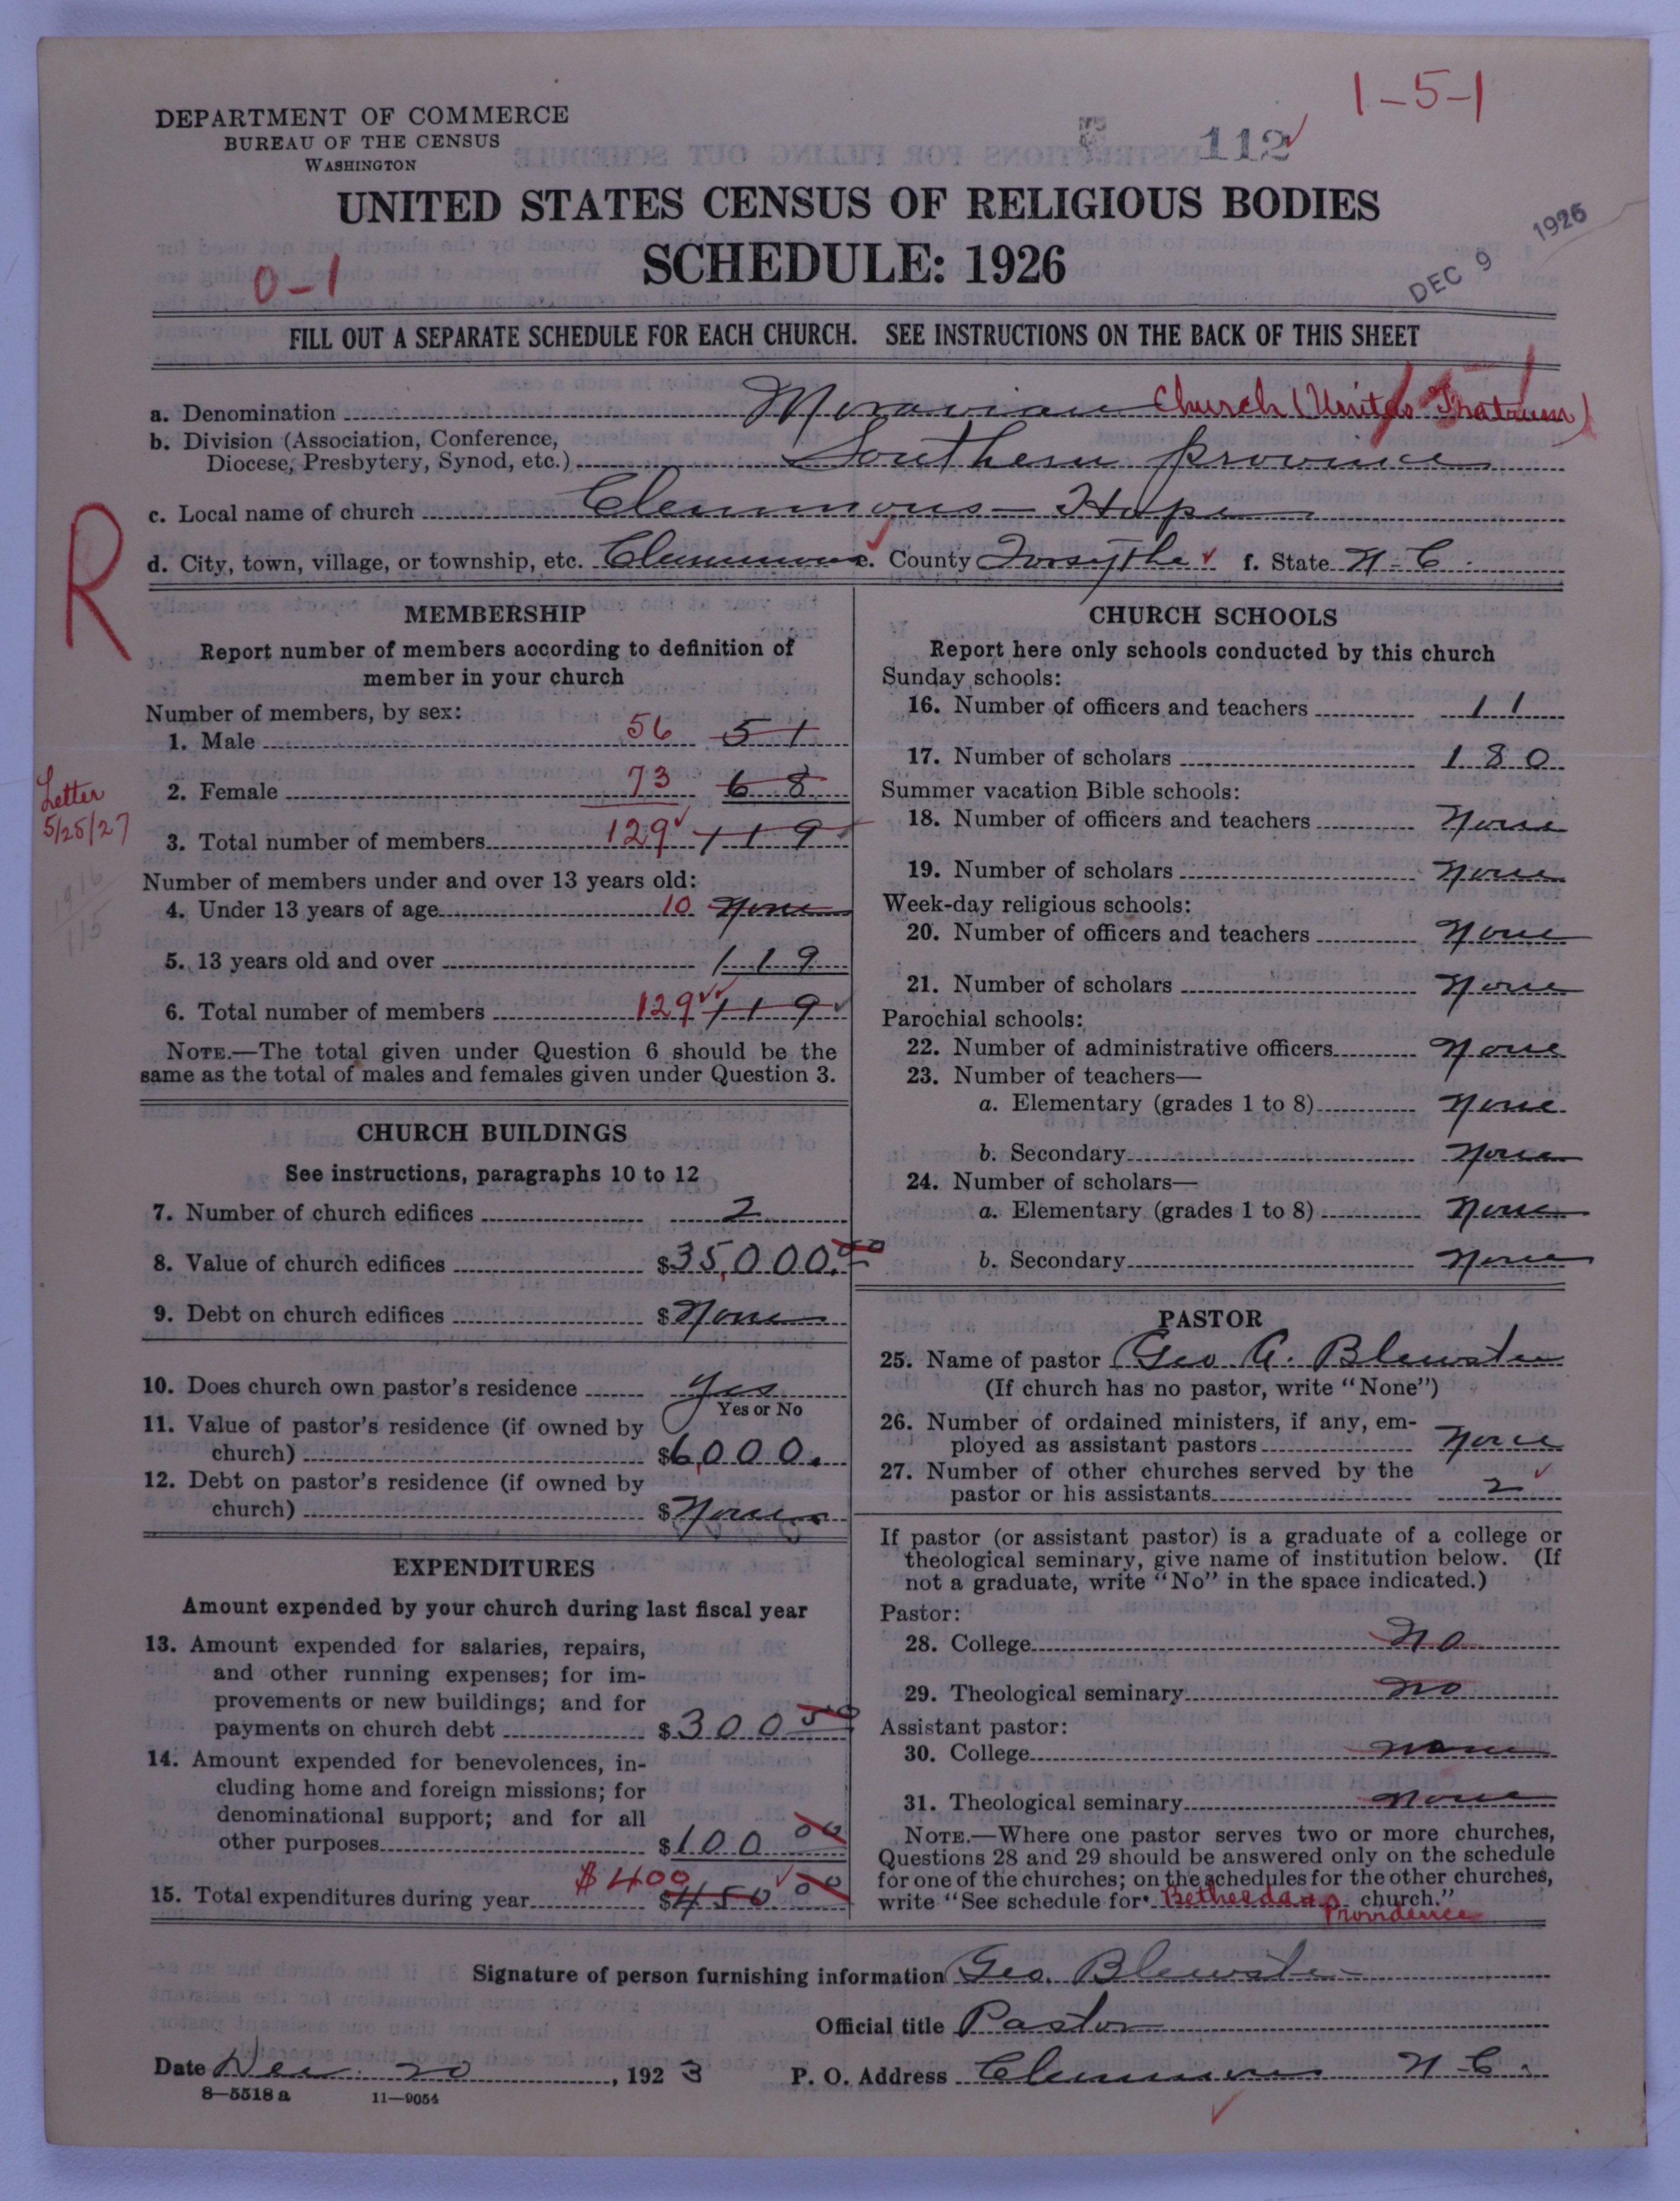 1-5-1
DEPARTMENT OF COMMERCE
BUREAU OF THE CENSUS
WASHINGTON
112
UNITED STATES CENSUS OF RELIGIOUS BODIES
SCHEDULE: 1926
DEC 9 1926
0-1
FILL OUT A SEPARATE SCHEDULE FOR EACH CHURCH. SEE INSTRUCTIONS ON THE BACK OF THIS SHEET
a. Denomination Moravian Church (Unitas Fratrum)
b. Division (Association, Conference,
Diocese, Presbytery, Synod, etc.) Southern Province
c. Local name of church Clemmons - Hope
R
d. City, town, village, or township, etc. Clemmons e. County Forsythe f. State N.C.
MEMBERSHIP
Report number of members according to definition of
member in your church
Number of members, by sex:
1. Male 56 51
2. Female 73 68
Letter
5/25/27
3. Total number of members 129 119
1916
115
Number of members under and over 13 years old:
4. Under 13 years of age 10 None
5. 13 years old and over 119
6. Total number of members 129 119
NOTE.—The total given under Question 6 should be the
same as the total of males and females given under Question 3.
CHURCH BUILDINGS
See instructions, paragraphs 10 to 12
7. Number of church edifices 2
8. Value of church edifices $35,000.00
9. Debt on church edifices $None
10. Does church own pastor's residence Yes
Yes or No
11. Value of pastor's residence (if owned by
church) $6,000.
12. Debt on pastor's residence (if owned by
church) $None
EXPENDITURES
Amount expended by your church during last fiscal year
13. Amount expended for salaries, repairs,
and other running expenses; for im-
provements or new buildings; and for
payments on church debt $300 50
14. Amount expended for benevolences, in-
cluding home and foreign missions; for
denominational support; and for all
other purposes $100 00
15. Total expenditures during year $400 $450 00
CHURCH SCHOOLS
Report here only schools conducted by this church
Sunday schools:
16. Number of officers and teachers 11
17. Number of scholars 180
Summer vacation Bible schools:
18. Number of officers and teachers None
19. Number of scholars None
Week-day religious schools:
20. Number of officers and teachers None
21. Number of scholars None
Parochial schools:
22. Number of administrative officers None
23. Number of teachers—
a. Elementary (grades 1 to 8) None
b. Secondary None
24. Number of scholars—
a. Elementary (grades 1 to 8) None
b. Secondary None
PASTOR
25. Name of pastor Geo A. Blewster
(If church has no pastor, write "None")
26. Number of ordained ministers, if any, em-
ployed as assistant pastors None
27. Number of other churches served by the
pastor or his assistants 2
If pastor (or assistant pastor) is a graduate of a college or
theological seminary, give name of institution below. (If
not a graduate, write "No" in the space indicated.)
Pastor:
28. College No
29. Theological seminary No
Assistant pastor:
30. College None
31. Theological seminary None
NOTE.—Where one pastor serves two or more churches,
Questions 28 and 29 should be answered only on the schedule
for one of the churches; on the schedules for the other churches,
write "See schedule for Bethesda & church."
Providence
Signature of person furnishing information Geo. Blewster
Official title Pastor
Date Nov. 20, 1923 P. O. Address Clemmons N.C.
8—5518 a 11—9054